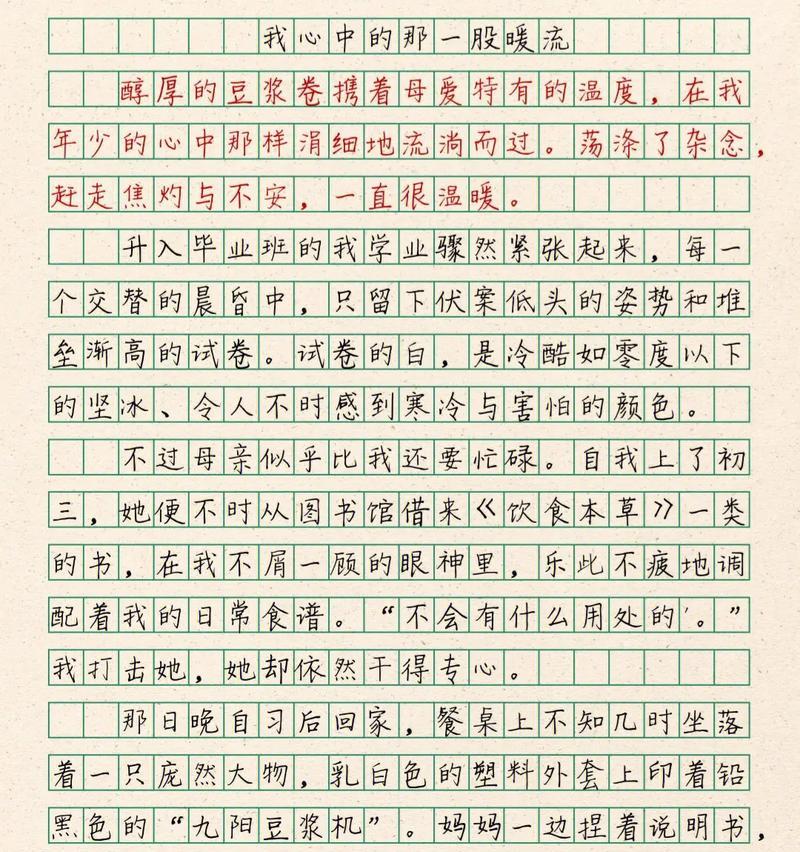 我心中的那一股暖流
醇厚的豆浆卷携着母爱特有的温度，在我
年少的心中那样涓细地流淌而过。荡涤了杂念，
赶走焦灼与不安，一直很温暖。
升入毕业班的我学业骤然紧张起来，每一
个交替的晨昏中，只留下伏案低头的姿势和堆
垒渐高的试卷。试卷的白，是冷酷如零度以下
的坚冰、令人不时感到寒冷与害怕的颜色。
不过母亲似乎比我还要忙碌。自我上了初
三，她便不时从图书馆借来《饮食本草》一类
的书，在我不屑一顾的眼神里，乐此不疲地调
配着我的日常食谱。“不会有什么用处的'。”
我打击她，她却依然干得专心。
那日晚自习后回家，餐桌上不知几时坐落
着一只庞然大物，乳白色的塑料外套上印着铅
黑色的“九阳豆浆机”。妈妈一边捏着说明书，